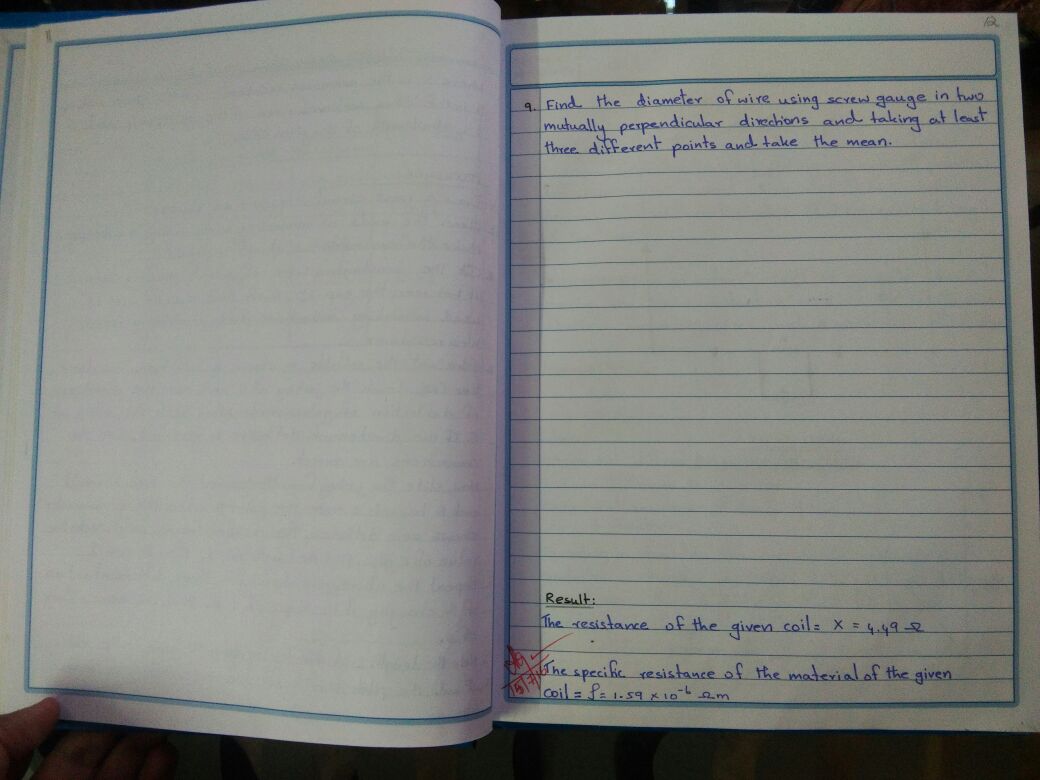 11
12
9. Find the diameter of wire using screw gauge in two
mutually perpendicular directions and taking at least
three different points and take the mean.
Result:
The resistance of the given coil = X = 4.49 Ω
The specific resistance of the material of the given
coil = ρ = 1.59 × 10⁻⁶ Ωm